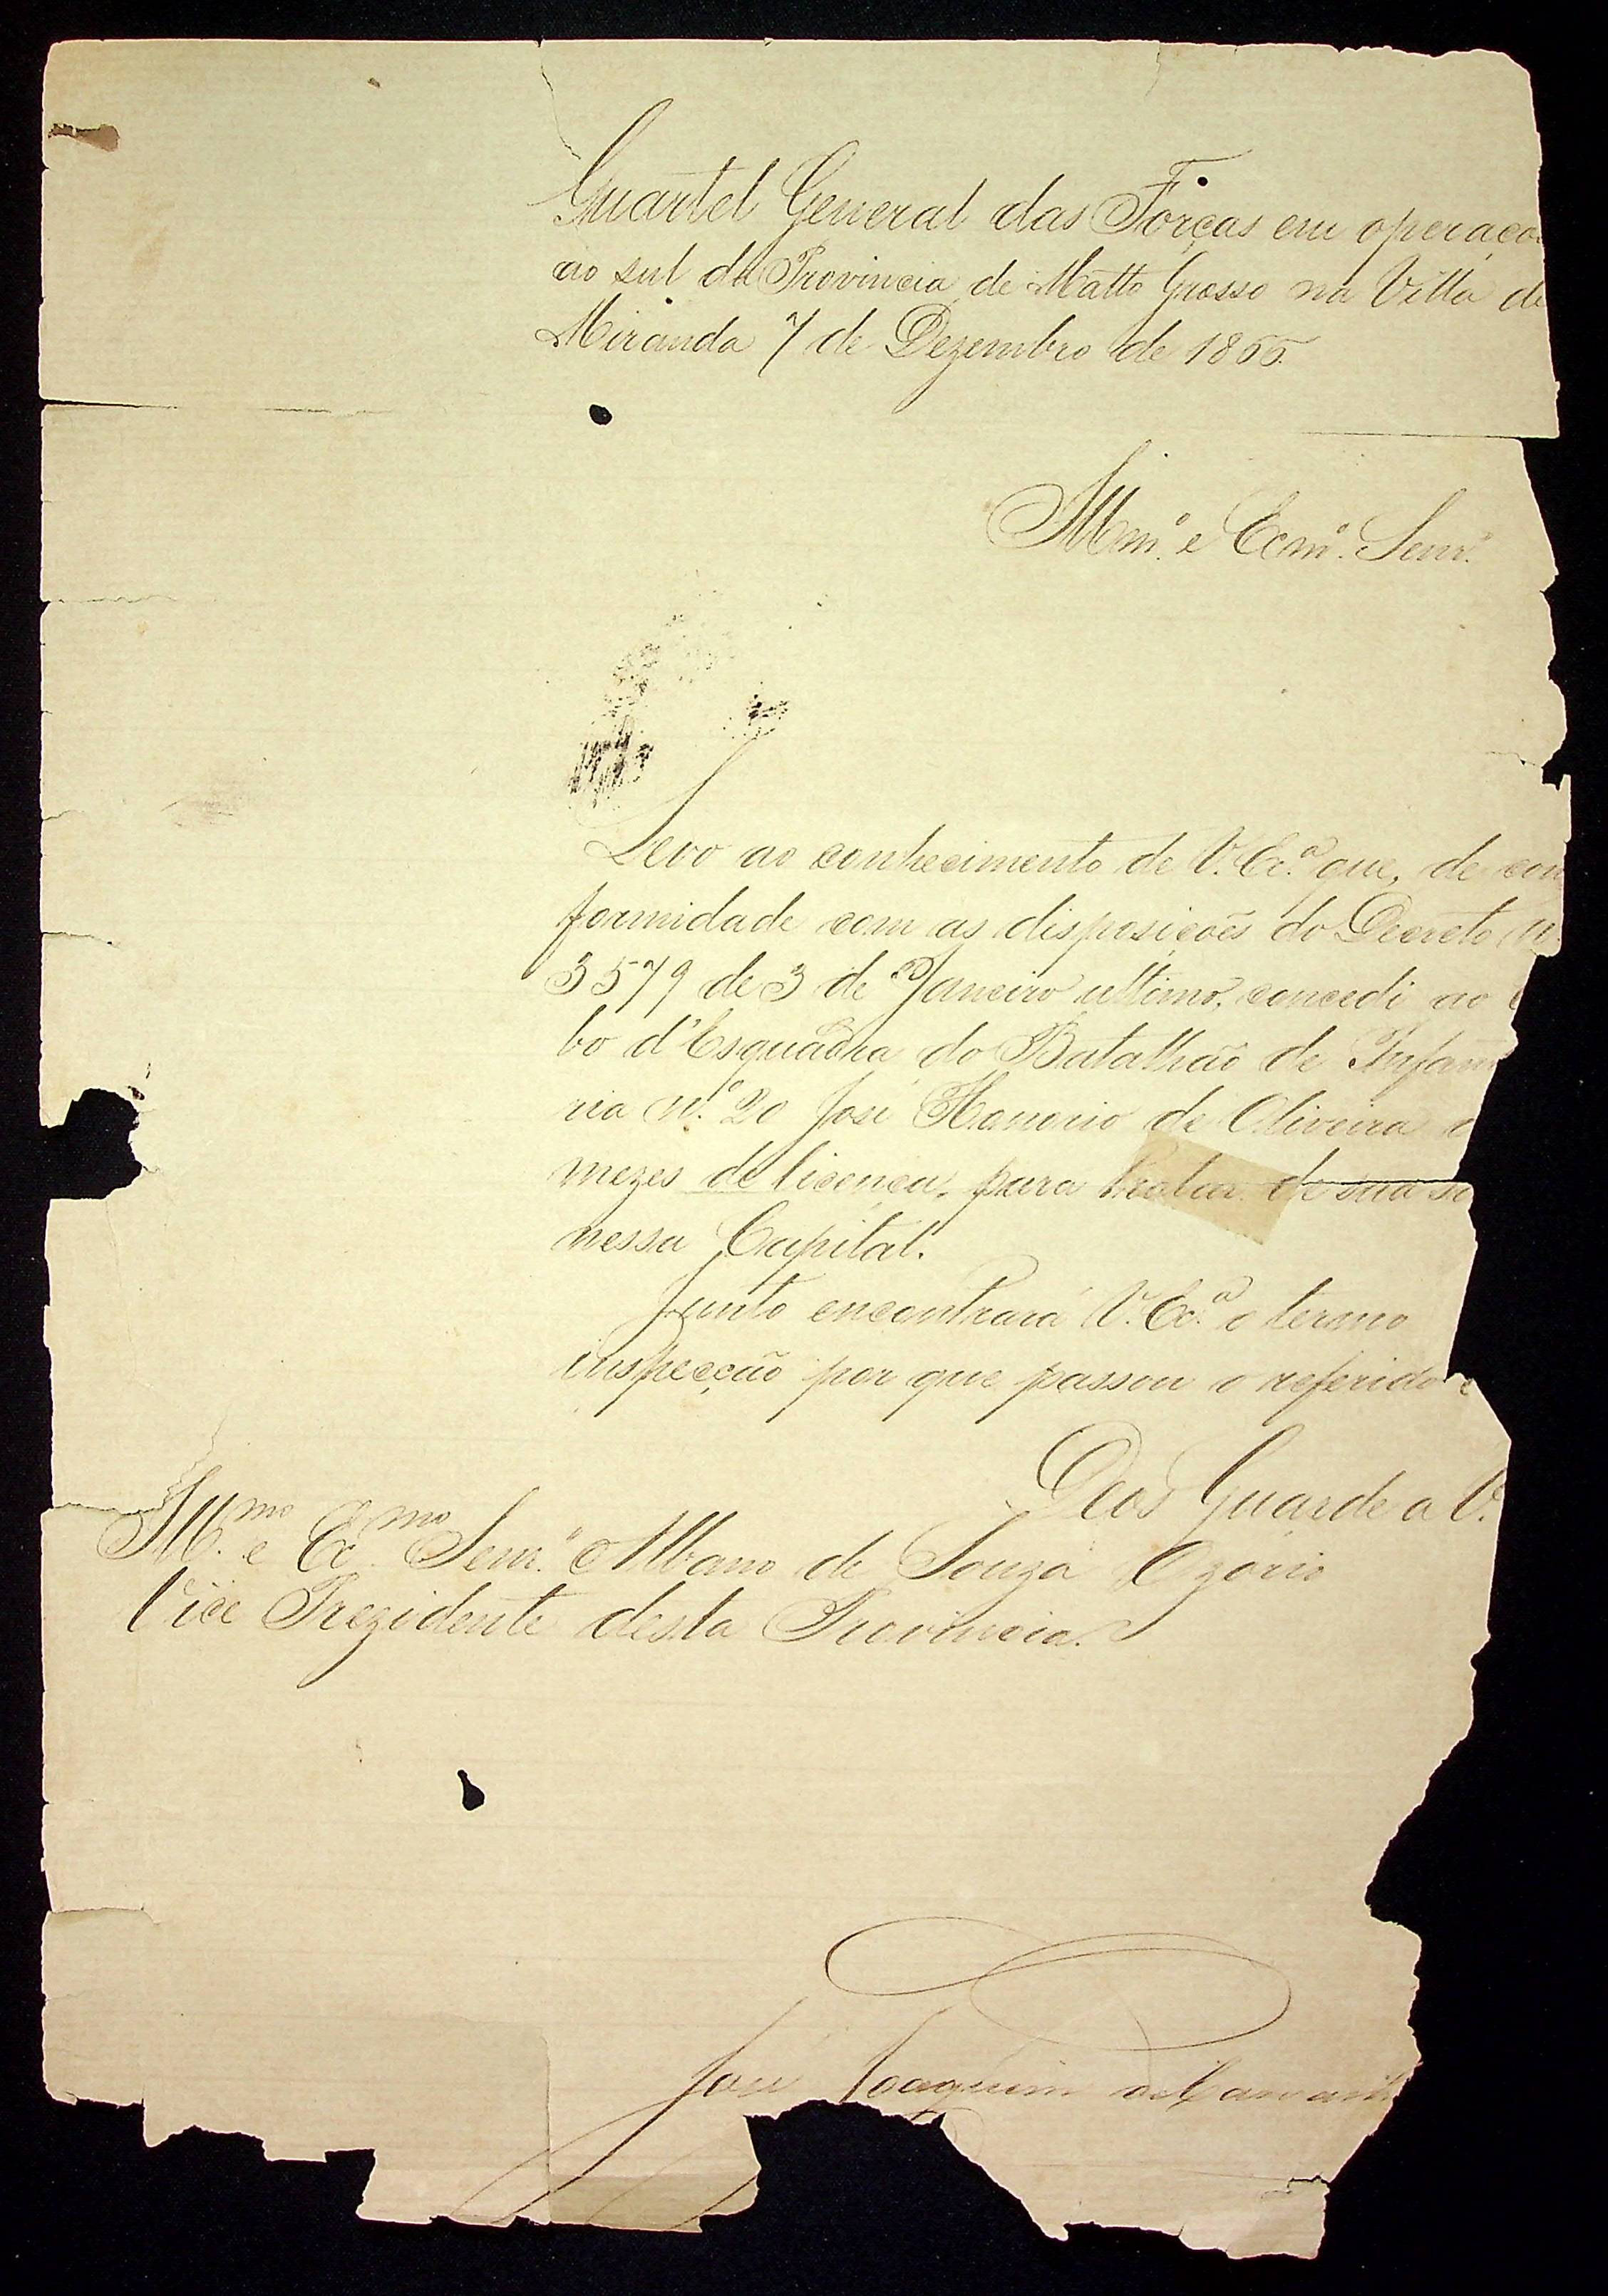 Quartel General das Forças em operaçoe
ao sul da Provincia de Matto Grosso na Villa de
Miranda 7 de Dezembro de 1866.
Illm.º e Ecmº. Senr.
Levo ao conhecimento de V. Ex.ª que, de con
formidade com as disposiçoẽs do Decreto n.
3579 de 3 de Janeiro ultimo, concedi ao
bo d'Esquadra do Batalhão de Infan
ria n.º 20 José Honorio de Oliveira
mezes de licença, para tratar de sua sa
nessa Capital.
Junto encontrará V. Ex.ª o termo
inspecção por que passou o referido c
Deos Guarde a V.
Ill.mo e Ex.mo Senr. Albano de Souza Ozorio
Vice Prezidente desta Provincia.
José Joaquim de Carvalh